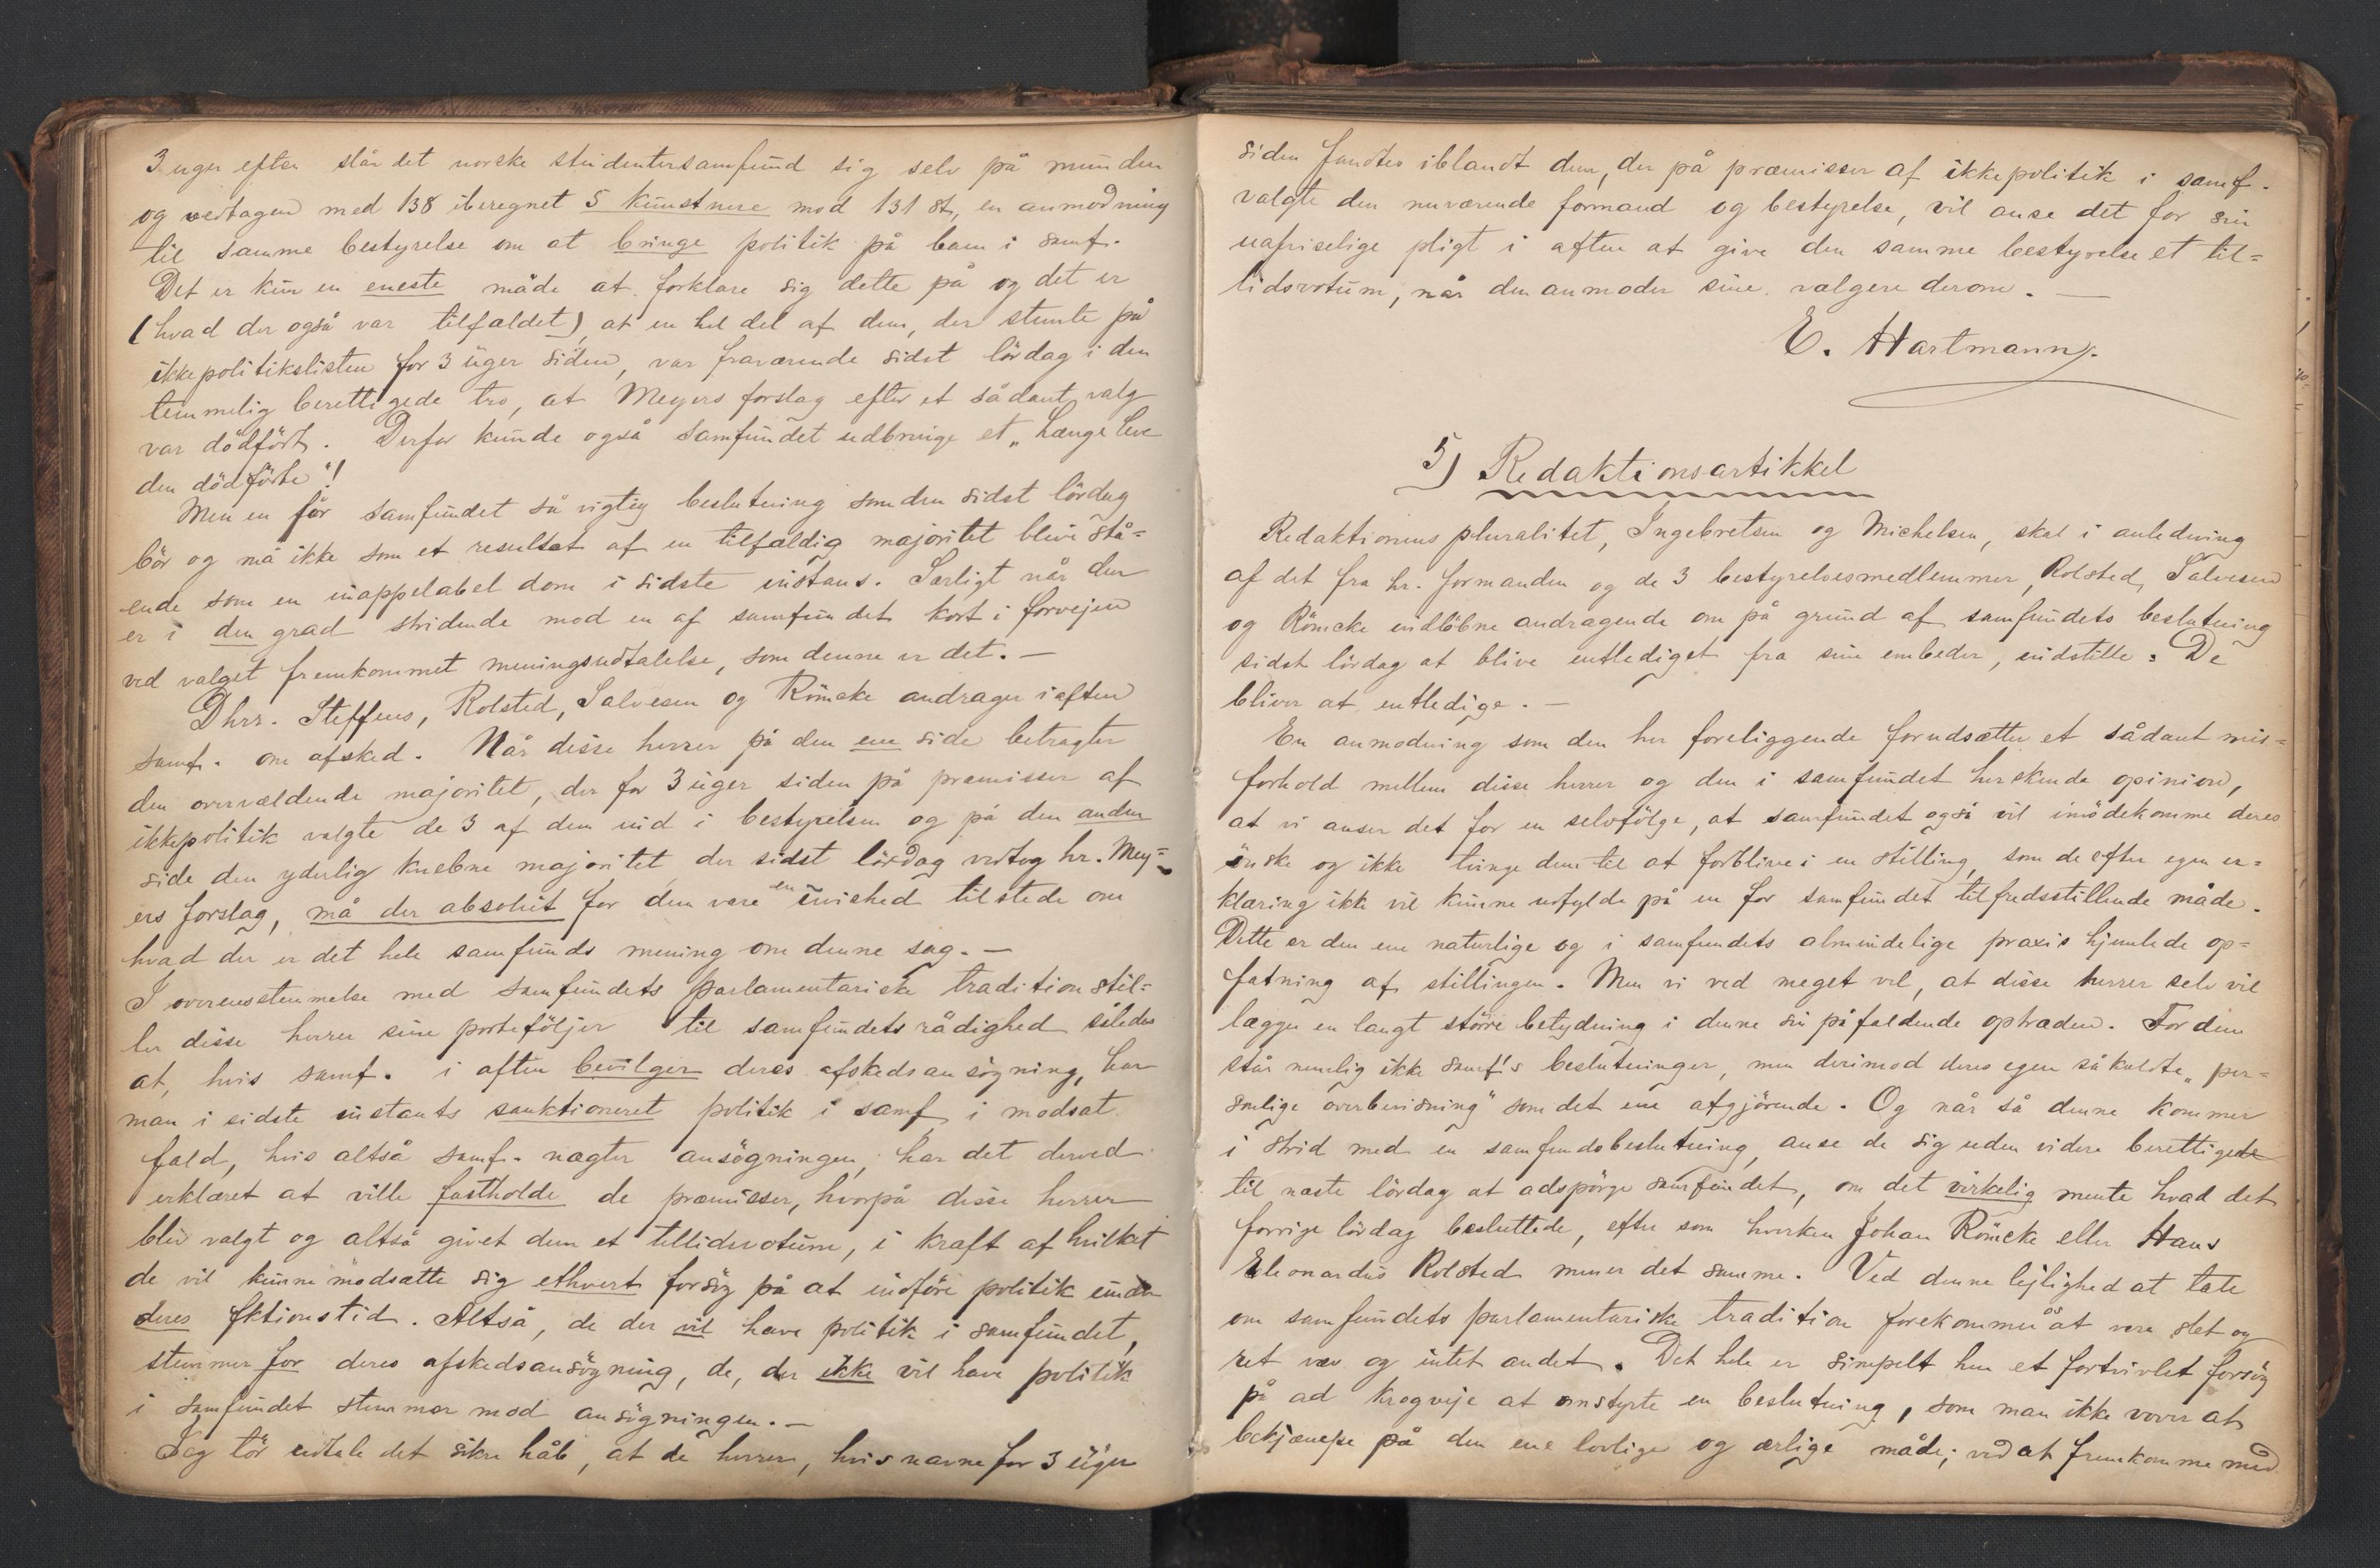 3 uger efter slår det norske studentersamfund sig selv på munden
og vedtager med 138 iberegnet 5 kunstnere mod 131 st, en anmodning
til samme bestyrelse om at bringe politik på bane i samf.
Det er kun en eneste måde at forklare sig dette på og det er
(hvad der også var tilfældet), at en hel del af dem, der stemte på
ikkepolitikslisten for 3 uger siden, var fraværende sidst lördag i den
temmelig berettigede tro, at Meyers forslag efter et sådant valg
var dödfört. Derfor kunde også samfundet udbringe et „Længe leve
den dödförte"!
Men en for samfundet så vigtig beslutning som den sidst lördag
bör og må ikke som et resultat af en tilfældig majoritet blive stå=
ende som en inappelabel dom i sidste instans. Særligt når den
er i den grad stridende mod en af samfundet kort i forvejen
ved valget fremkommet meningsudtalelse, som denne er det. —
Dhrr. Steffens, Rolsted, Salvesen og Römcke andrager iaften
samf. om afsked. Når disse herrer på den ene side betragter
den overvældende majoritet, der for 3 uger siden på præmisser af
ikkepolitik valgte de 3 af dem ind i bestyrelsen og på den anden
side den yderlig knebne majoritet der sidst lördag vedtog hr. Mey=
ers forslag, må der absolut for dem være en uvished tilstede om
hvad der er det hele samfunds mening om denne sag. —
I overensstemmelse med samfundets parlamentariske tradition stil=
ler disse herrer sine porteföljer til samfundets rådighed således
at, hvis samf. i aften bevilger deres afskedsansögning, har
man i sidste instants sanktioneret politik i samf, i modsat
fald, hvis altså samf. nægter ansögningen, har det derved
erklæret at ville fastholde de præmisser, hvorpå disse herrer
blev valgt og altså givet dem et tillidsvotum, i kraft af hvilket
de vil kunne modsætte sig ethvert forsög på at indföre politik under
deres fktionstid. Altså, de der vil have politik i samfundet,
stemmer for deres afskedsansögning, de, der ikke vil have politik
i samfundet stemmer mod ansögningen. —
Jeg tör udtale det sikre håb, at de herrer, hvis navne for 3 uger
siden fandtes iblandt dem, der på præmisser af ikkepolitik i samf.
valgte den nuværende formand og bestyrelse, vil anse det for sin
uafviselige pligt i aften at give den samme bestyrelse et til=
lidsvotum, når den anmoder sine vælgere derom. —
E. Hartmann.
5) Redaktionsartikkel
Redaktionens pluralitet, Ingebretsen og Michelsen, skal i anledning
af det fra hr. formanden og de 3 bestyrelsesmedlemmer, Rolsted, Salvesen
og Römcke indlöbne andragende om på grund af samfundets beslutning
sidst lördag at blive entlediget fra sine embeder, indstille: De
bliver at entledige. —
En anmodning som den her foreliggende forudsætter et sådant mis=
forhold mellem disse herrer og den i samfundet herskende opinion,
at vi anser det for en selvfölge, at samfundet også vil imödekomme deres
önske og ikke tvinge dem til at forblive i en stilling, som de efter egen er=
klæring ikke vil kunne udfylde på en for samfundet tilfredsstillende måde.
Dette er den ene naturlige og i samfundets almindelige praxis hjemlede op=
fatning af stillingen. Men vi ved meget vel, at disse herrer selv vil
lægge en langt större betydning i denne sin påfaldende optræden. For dem
står nemlig ikke samf's beslutninger, men derimod deres egen såkaldte „per=
sonlige overbevisning" som det ene afgjörende. Og når så denne kommer
i strid med en samfundsbeslutning, anse de sig uden videre berettigede
til næste lördag at adspörge samfundet, om det virkelig mente hvad det
forrige lördag besluttede, efter som hverken Johan Römcke eller Hans
Eleonardus Rolsted mener det samme. Ved denne lejlighed at tale
om samfundets parlamentariske tradition forekommer os at være slet og
ret væv og intet andet. Det hele er simpelt hen et fortvivlet forsög
på ad krogveje at omstyrte en beslutning, som man ikke vover at
bekjæmpe på den ene lovlige og ærlige måde; ved at fremkomme med